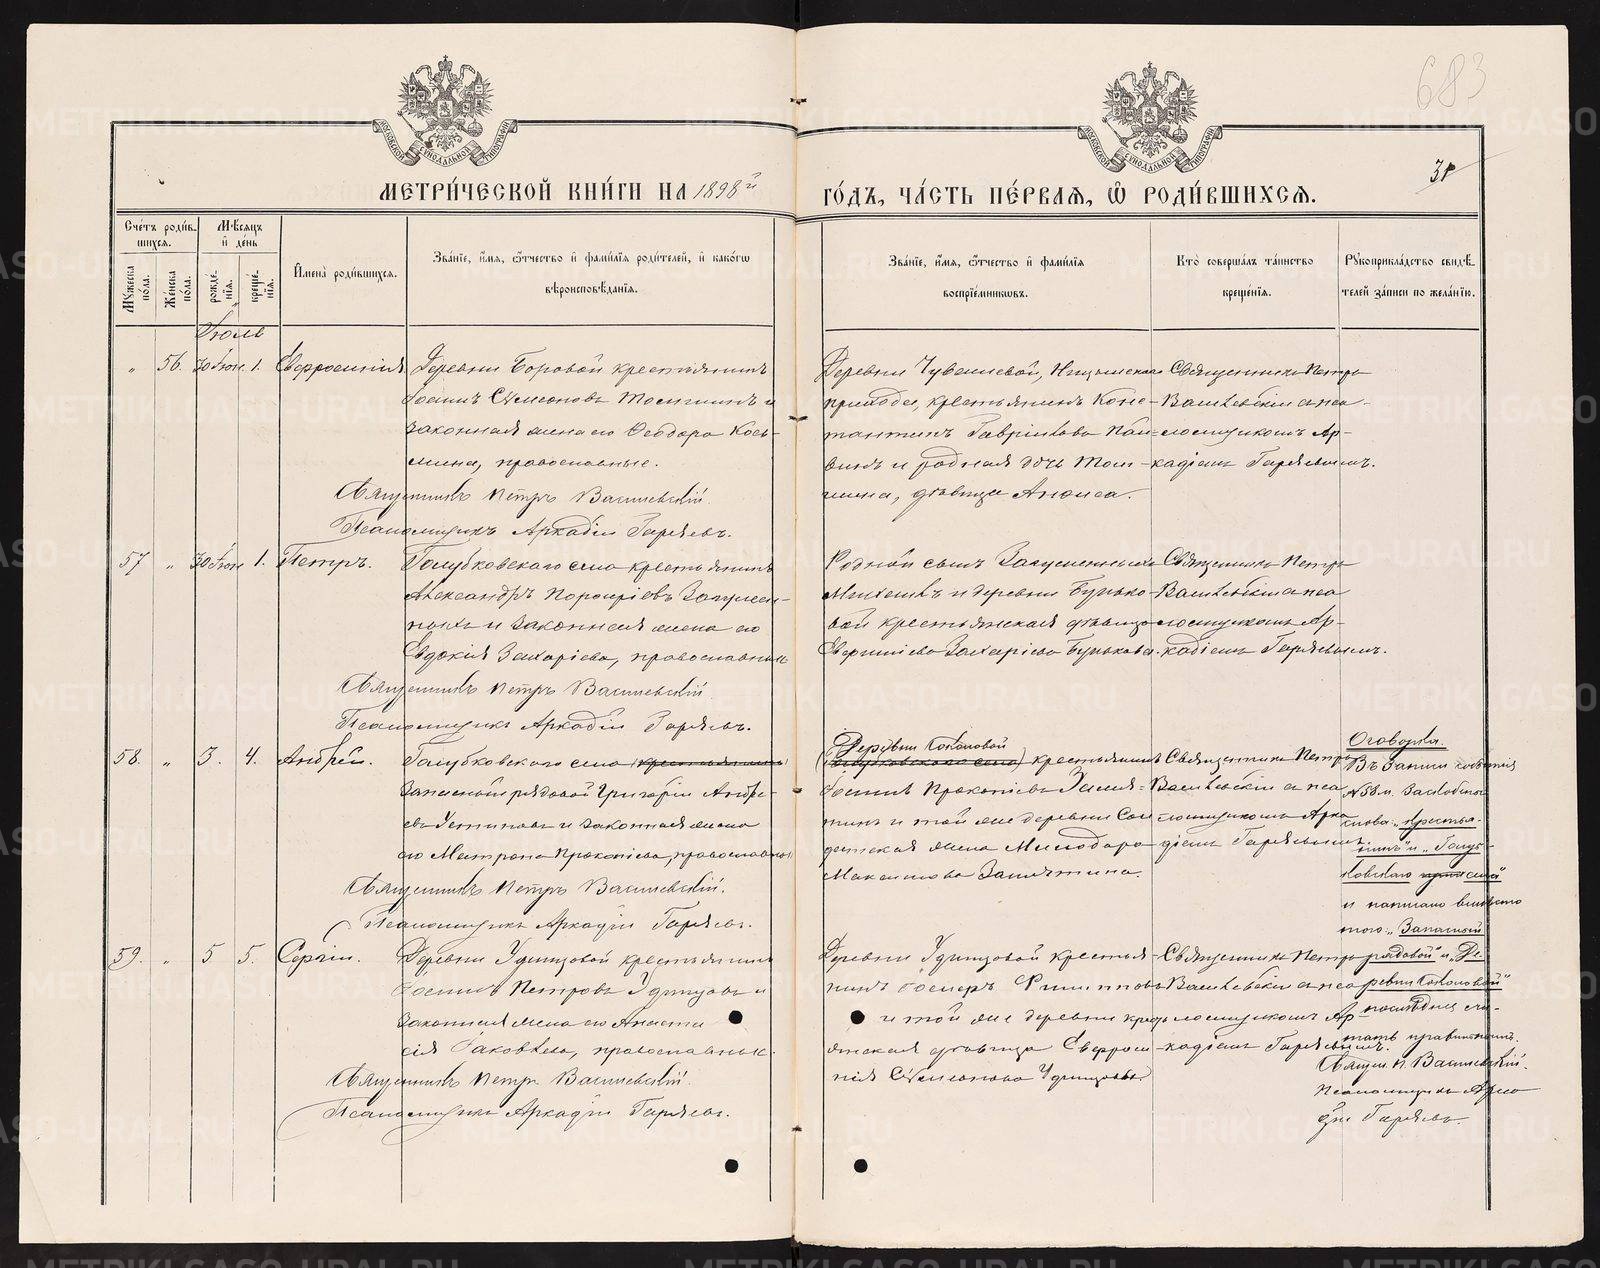 683
31
МОСКОВСКОЙ СѴНОДАЛЬНОЙ ТИПОГРАФІИ
МОСКОВСКОЙ СѴНОДАЛЬНОЙ ТИПОГРАФІИ
МЕТРИ́ЧЕСКОЙ КНИ́ГИ НА 1898й
ГО́ДЪ, ЧА́СТЬ ПЕ́РВАѦ, Ѡ҆ РОДИ́ВШИХСѦ.
Сче́тъ роди́в-
шихся.
Мѣ́сяцъ
и҆ де́нь
Му́жеска по́ла.
Же́нска по́ла.
рожде́-
нїя.
креще́-
нїя.
И҆мена̀ роди́вшихся.
Зва́нїе, и҆́мя, ѻ҆́тчество и҆ фами́лїя роди́телей, и҆ како́гѡ
вѣроисповѣ́данїя.
Зва́нїе, и҆́мя, ѻ҆́тчество и҆ фами́лїя
воспрїе́мникѡвъ.
Кто̀ соверша́лъ та́инство
креще́нїя.
Рꙋкоприкла́дство свидѣ́-
телей за́писи по жела́нїю.
Іюль
„ 56. 30 Іюн. 1. Евфросинія
Деревни Боровой крестьянинъ
Іосифъ Сѵмеоновъ Томшинъ и
законная жена его Ѳеодора Козь-
мина, православные.
Священникъ Петръ Василевскій
Псаломщикъ Аркадій Гаряевъ.
Деревни Чувашевой, Ницынскаго
прихода, крестьянинъ Конс-
тантинъ Гавріиловъ
и родная дочь Том-
шина, дѣвица Анфиса.
Священникъ Петръ
Василевскій и пса-
ломщикомъ Ар-
кадіемъ Гаряевымъ.
57 „ 30 Іюн 1. Петръ.
Голубковскаго села крестьянинъ
Александръ Порфиріевъ
и законная жена его
Евдокія Захаріева, православные
Священникъ Петръ Василевскій
Псаломщикъ Аркадій Гаряевъ.
Родной сынъ
и деревни Бунько-
вой крестьянская дѣвица
Захаріева Бунькова.
Священникъ Петръ
Василевскій и пса
ломщикомъ Ар-
кадіемъ Гаряевымъ.
58. „ 3. 4. Андрей.
Голубковскаго села (крестьянинъ)
Запасный рядовой Григорій Андре-
евъ Устиновъ и законная жена
его Матрона Прокопіева, православные
Священникъ Петръ Василевскій.
Псаломщикъ Аркадій Гаряевъ.
Деревни Соколовой
(Голубковскаго села) крестьянинъ
Іосифъ Прокопіевъ Замя-
тинъ и той же деревни Сол
датская жена Милодора
Максимова Замятина.
Священникъ Петръ
Василевскій и пса
ломщикомъ Арка
діемъ Гаряевымъ
Оговорка.
Въ записи событія
№ 58 й
слова: „крестья-
нинъ" и „Голуб-
ковскаго села"
и написано вмѣсто
того: „Запасный
рядовой" и „Де-
ревни Соколовой"
послѣднее счи-
тать правильнымъ.
Свящ. П. Василевскій.
Псаломщикъ Арка
дій Гаряевъ.
59. „ 5 5. Сергій.
Деревни Удинцовой крестьянинъ
Іосифъ Петровъ Удинцовъ и
законная жена его Анаста
сія Іаковлева, православные.
Священникъ Петръ Василевскій.
Псаломщикъ Аркадій Гаряевъ.
Деревни Удинцовой крестья-
нинъ Филипповъ
и той же деревни кресть
янская дѣвица Евфроси-
нія Сѵмеонова Удинцова.
Священникъ Петръ
Василевскій и пса
ломщикомъ Ар-
кадіемъ Гаряевымъ.
METRIKI.GASO-URAL.RU